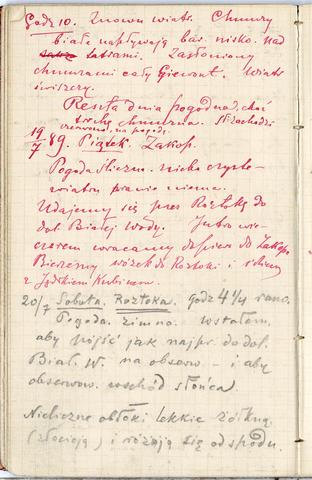 Godz 10. Znowu wiatr. Chmury
białe napływają bar. nisko. nad
Tatrami. Zasłoniony
chmurami cały Giewont. Wiatr
świszczy.
Reszta dnia pogodna, choć
trochę chmurna. Sł. zachodzi
czerwono, na pogodę.
19/7 89. Piątek. Zakop.
Pogoda śliczn. niebo czyste
wiatru prawie niema.
Udajemy się przez Roztokę do
dol. Białej Wody. Jutro wie-
czorem wracamy dopiero do Zakop.
Bierzemy wózek do Roztoki i
z Jędrkiem Kubinem.
20/7 Sobota. Roztoka. godz 4 1/4 rano.
Pogoda. zimno. wstałem,
aby pójść jak najpr. do dol.
Biał. W. na obserw. – i aby
obserwow. wschód słońca.
Nieliczne obłoki lekkie żółkną
(złocieją) i różują się od spodu.